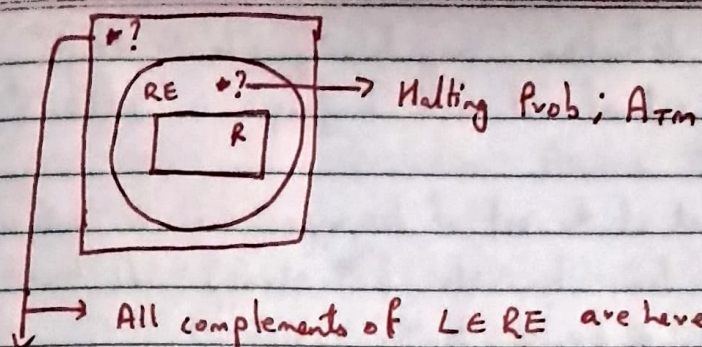 * ?
RE *? → Halting Prob; A_TM
R
→ All complements of L ∈ RE are here